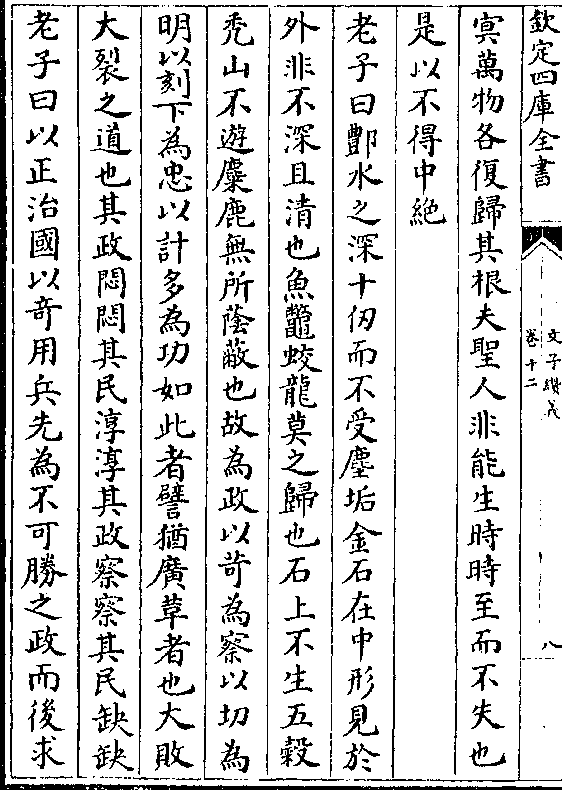 欽定四庫全書
文子纘義
卷十二
八
㝠萬物各復歸其根夫聖人非能生時時至而不失也
是以不得中絶
老子曰酆水之深十仞而不受塵垢金石在中形見於
外非不深且清也魚鼈蛟龍莫之歸也石上不生五榖
禿山不遊麋鹿無所蔭蔽也故為政以苛為察以切為
明以刻下為忠以計多為功如此者譬猶廣革者也大敗
大裂之道也其政悶悶其民淳淳其政察察其民缺缺
老子曰以正治國以竒用兵先為不可勝之政而後求